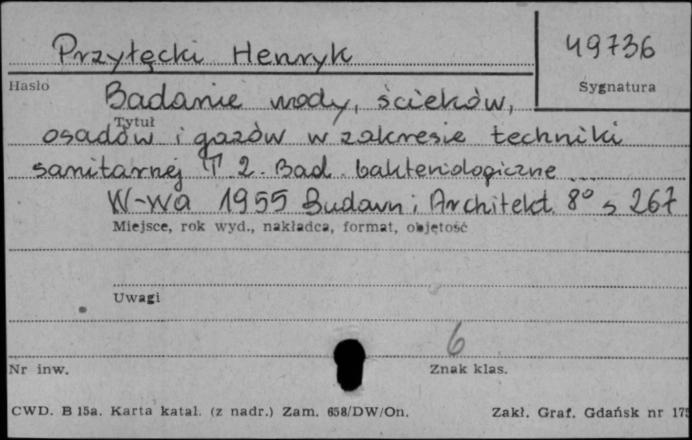 Przyłęcki Henryk
49736
Hasło
Sygnatura
Badanie wody, ścieków,
Tytuł
osadów i gazów w zakresie techniki
sanitarnej T 2. Bad. bakteriologiczne ...
W-wa 1955 Budown i Architekt. 8° s 267
Miejsce, rok wyd., nakładca, format, objętość
Uwagi
6
Nr inw.
Znak klas.
CWD. B 15a. Karta katal. (z nadr.) Zam. 658/DW/On.
Zakł. Graf. Gdańsk nr 175